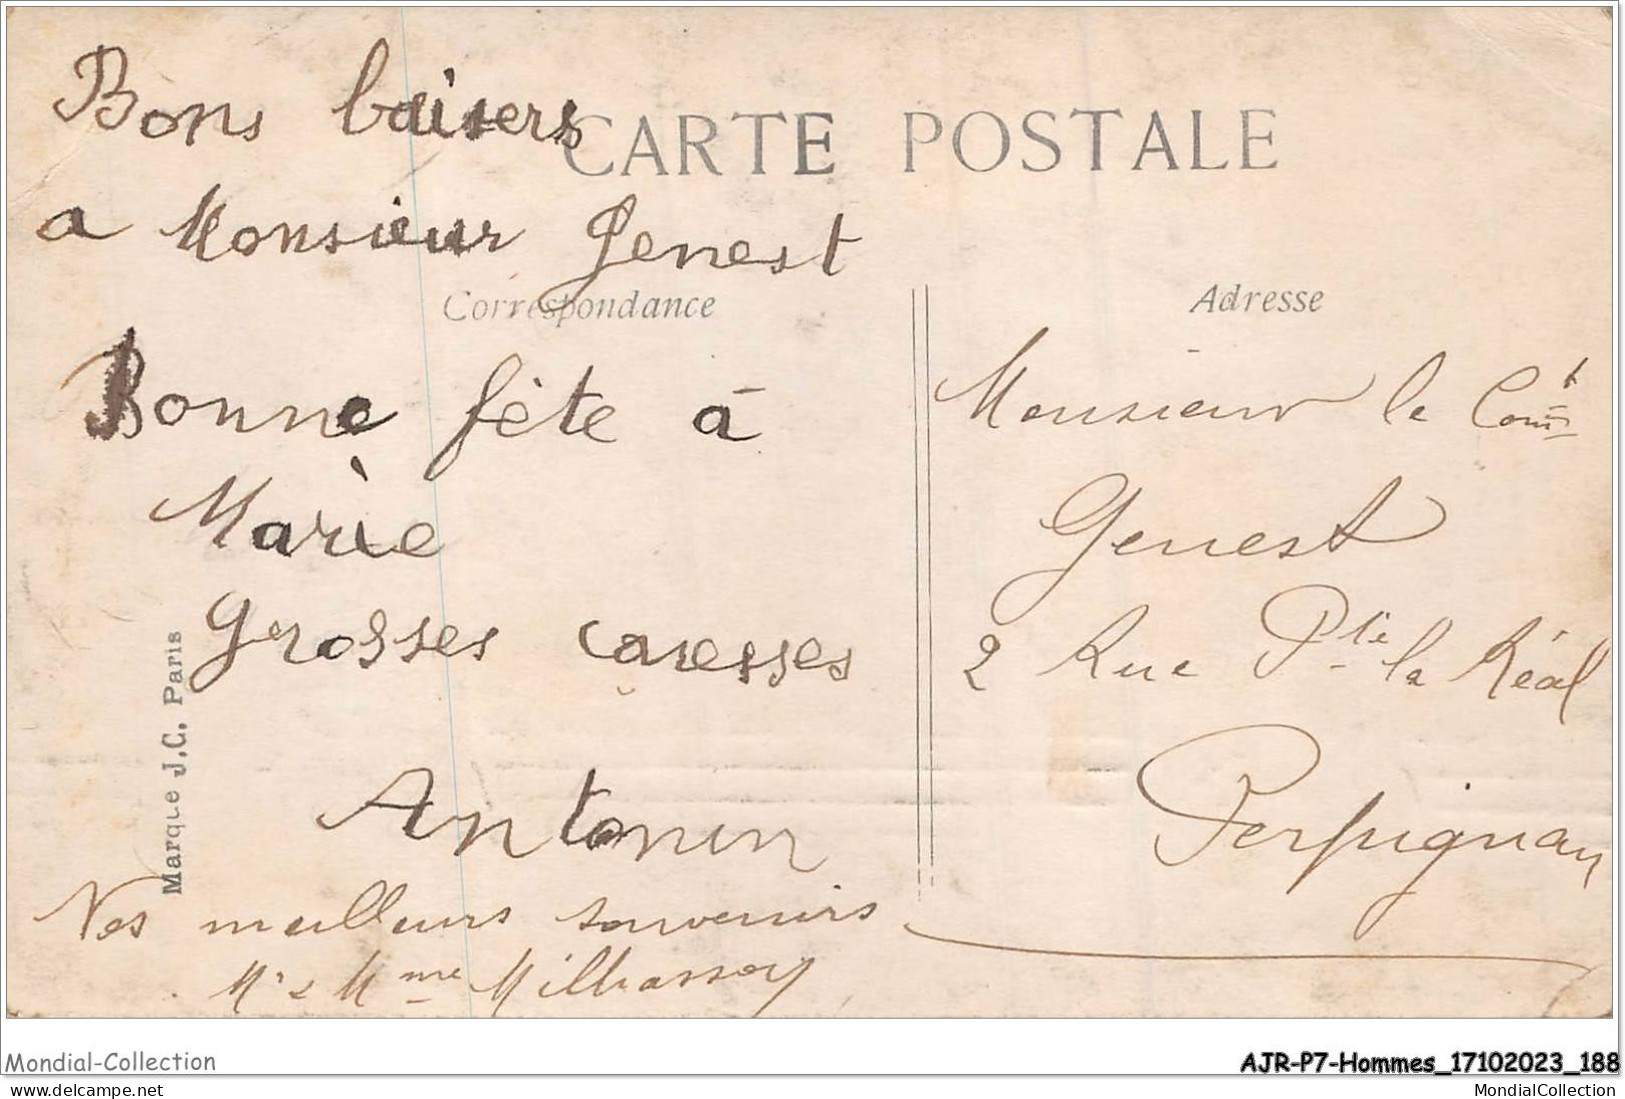 Bons baisers
CARTE POSTALE
a Monsieur Genest
Correspondance
Bonne fête à
Marie
grosses caresses
Antonin
Nos meilleurs souvenirs
Mr & Mme
Marque J.C. Paris
Adresse
Monsieur le Comt
Genest
2 Rue Pte la Réal
Perpignan
Mondial-Collection
AJR-P7-Hommes_17102023_188
www.delcampe.net
MondialCollection